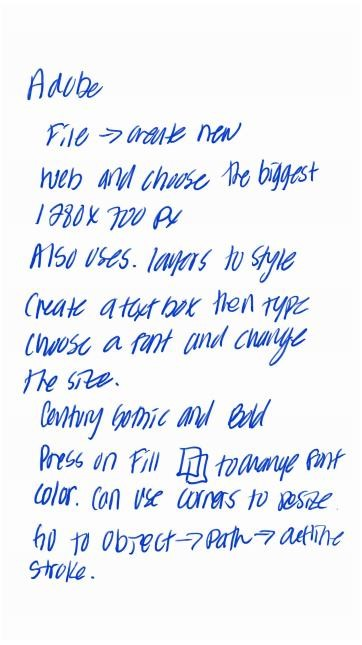 Adobe
File → create new
web and choose the biggest
1280 x 700 px
Also uses. layers to style
Create a text box then type
choose a font and change
the size.
Century Gothic and Bold
Press on Fill to change font
color. can use corners to resize.
Go to Object → Path → outline
stroke.